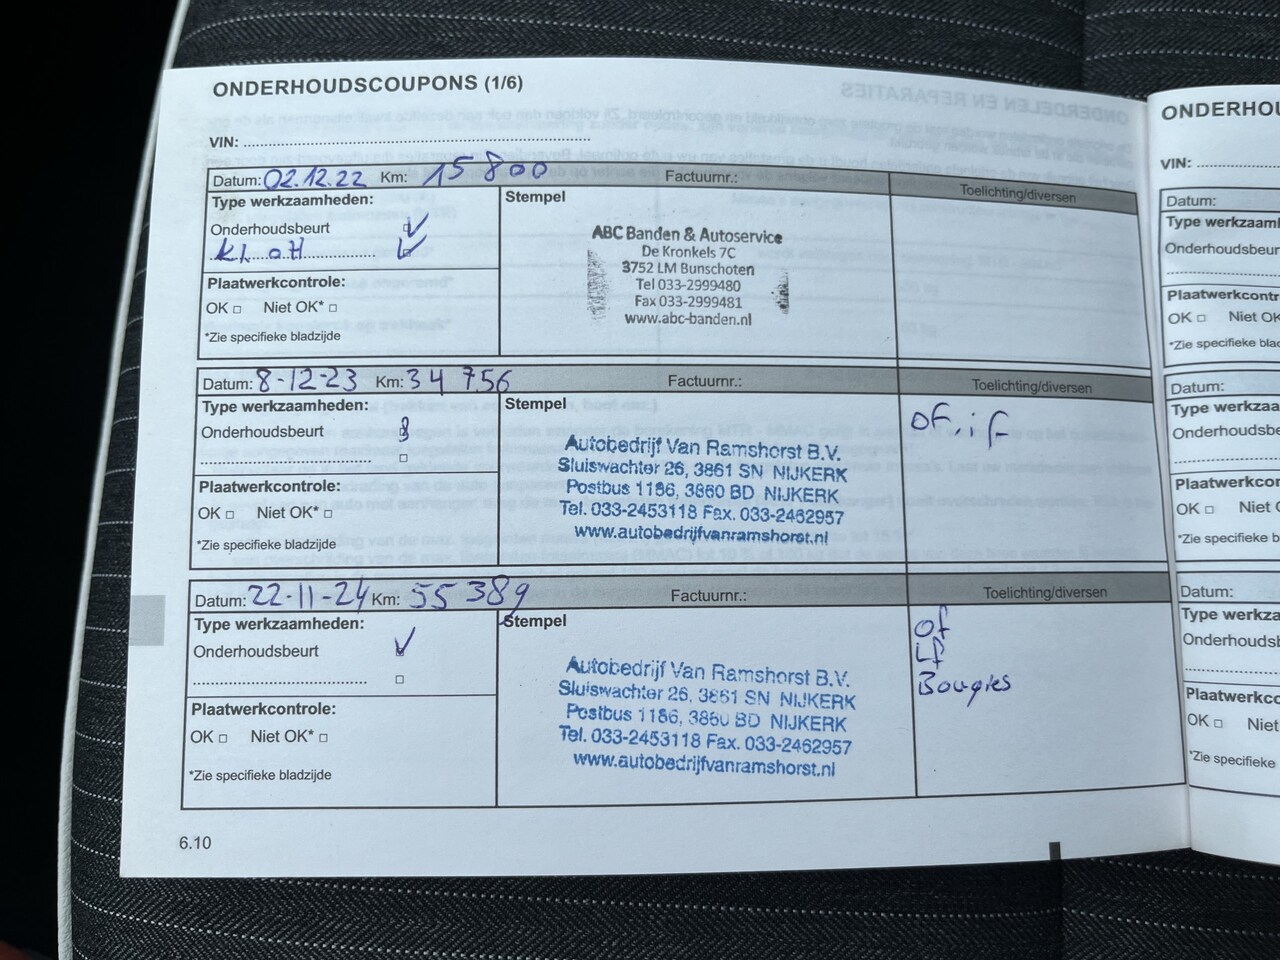 ONDERHOUDSCOUPONS (1/6)
VIN:
Datum: 02.12.22 Km: 15800 Factuurnr.: Toelichting/diversen
Type werkzaamheden:
Stempel
Onderhoudsbeurt
ABC Banden & Autoservice
De Kronkels 7C
3752 LM Bunschoten
Tel 033-2999480
Fax 033-2999481
www.abc-banden.nl
Plaatwerkcontrole:
OK □ Niet OK* □
*Zie specifieke bladzijde
Datum: 8-12-23 Km: 34 756 Factuurnr.: Toelichting/diversen
Type werkzaamheden:
Stempel
Onderhoudsbeurt
Autobedrijf Van Ramshorst B.V.
Sluiswachter 26, 3861 SN NIJKERK
Postbus 1186, 3860 BD NIJKERK
Tel. 033-2453118 Fax. 033-2462957
www.autobedrijfvanramshorst.nl
OF, if
Plaatwerkcontrole:
OK □ Niet OK* □
*Zie specifieke bladzijde
Datum: 22-11-24 Km: 55 389 Factuurnr.: Toelichting/diversen
Type werkzaamheden:
Stempel
Onderhoudsbeurt
Autobedrijf Van Ramshorst B.V.
Sluiswachter 26, 3861 SN NIJKERK
Postbus 1186, 3860 BD NIJKERK
Tel. 033-2453118 Fax. 033-2462957
www.autobedrijfvanramshorst.nl
Of
Lf
Bougies
Plaatwerkcontrole:
OK □ Niet OK* □
*Zie specifieke bladzijde
6.10
ONDERHOU
VIN:
Datum:
Type werkzaam
Onderhoudsbe
Plaatwerkcontr
OK □ Niet OK
*Zie specifieke blad
Datum:
Type werkza
Onderhoudsbe
Plaatwerkcon
OK □ Niet O
*Zie specifieke b
Datum:
Type werkza
Onderhoudsb
Plaatwerkco
OK □ Niet
*Zie specifieke